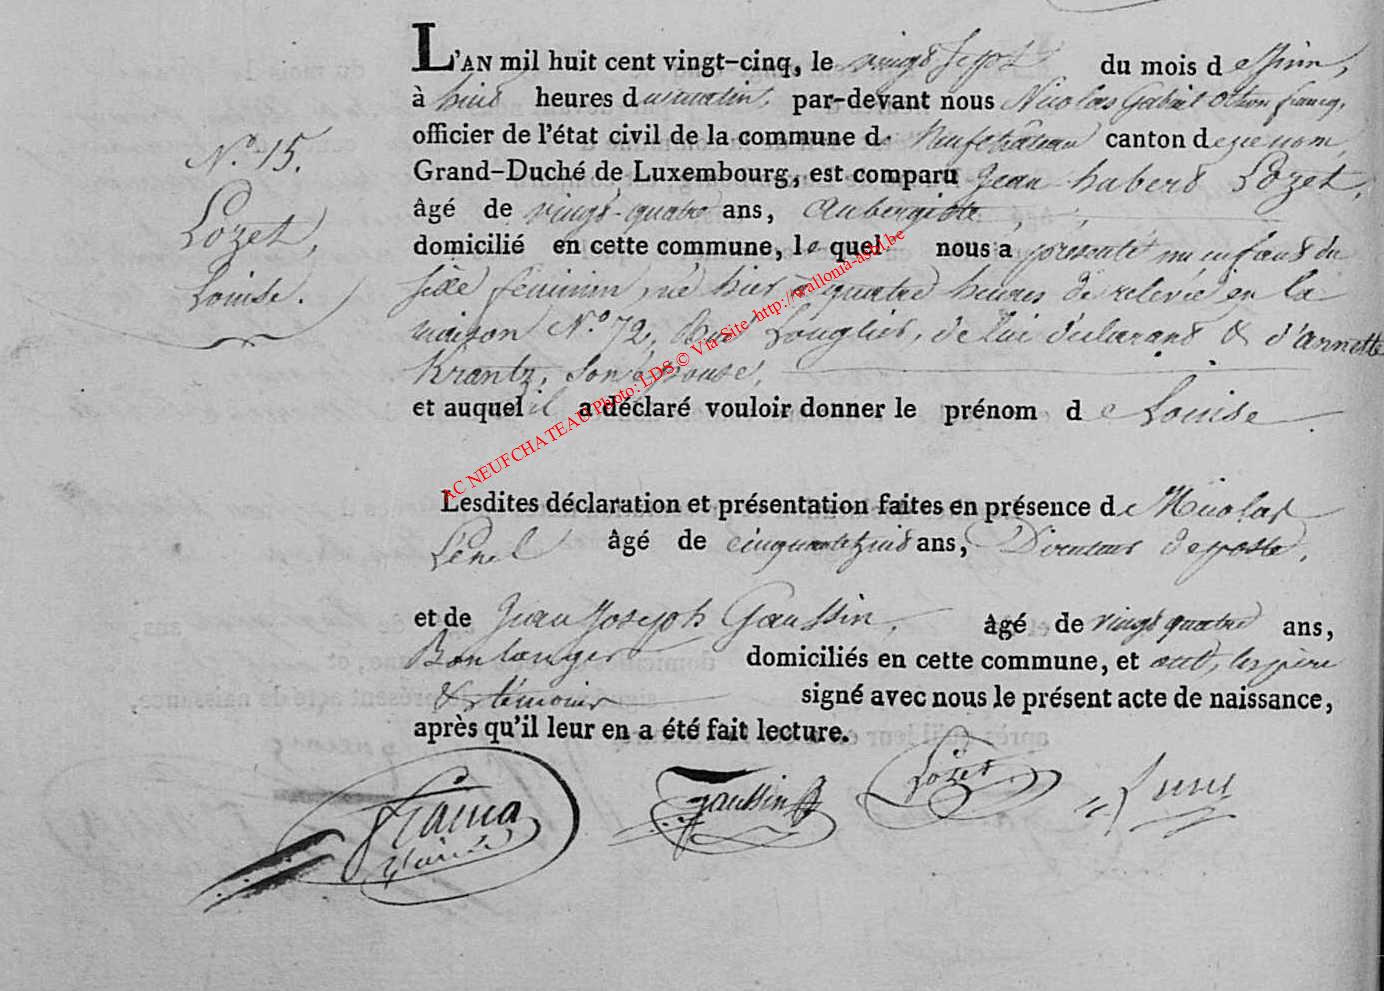 L'AN mil huit cent vingt-cinq, le vingt sept du mois de juin,
à huit heures du matin, par-devant nous Nicolas Gabriel
officier de l'état civil de la commune d. Neufchâteau canton de
Grand-Duché de Luxembourg, est comparu Jean hubert Lozet,
N.° 15.
Lozet,
Louise.
âgé de vingt-quatre ans, Aubergiste
domicilié en cette commune, le quel nous a présenté un enfant du
sèxe féminin, né hier à quatre heures de relevée en la
maison N.° 72, Rue Longlier, de lui déclarant & d'annette
Krantz, son épouse,
et auquel il a déclaré vouloir donner le prénom de Louise.
AC NEUFCHATEAU Photo: LDS © Via Site http://wallonia-asbl.be
Lesdites déclaration et présentation faites en présence de Nicolas
âgé de ans, Directeur de poste,
et de Jean Joseph Gaussin, âgé de vingt quatre ans,
Boulanger domiciliés en cette commune, et ont, les père
& témoins signé avec nous le présent acte de naissance,
après qu'il leur en a été fait lecture.
Gaussin Lozet